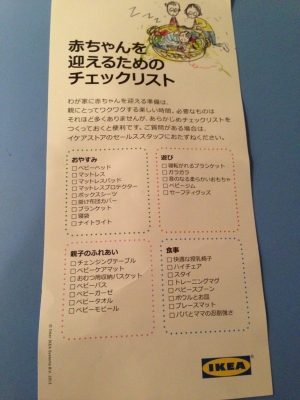 赤ちゃんを
迎えるための
チェックリスト
わが家に赤ちゃんを迎える準備は、
親にとってワクワクする楽しい時間。必要なものは
それほど多くありませんが、あらかじめチェックリストを
つくっておくと便利です。ご質問がある場合は、
イケアストアのセールススタッフにおたずねください。
おやすみ
□ ベビーベッド
□ マットレス
□ マットレスパッド
□ マットレスプロテクター
□ ボックスシーツ
□ 掛け布団カバー
□ ブランケット
□ 寝袋
□ ナイトライト
遊び
□ 寝転がれるブランケット
□ ガラガラ
□ 音のなる柔らかいおもちゃ
□ ベビージム
□ セーフティグッズ
親子のふれあい
□ チェンジングテーブル
□ ベビーケアマット
□ おむつ用収納バスケット
□ ベビーバス
□ ベビーガーゼ
□ ベビータオル
□ ベビーモビール
食事
□ 快適な授乳椅子
□ ハイチェア
□ スタイ
□ トレーニングマグ
□ ベビースプーン
□ ボウルとお皿
□ プレースマット
□ パパとママの忍耐強さ
© Inter IKEA Systems B.V. 2013
IKEA